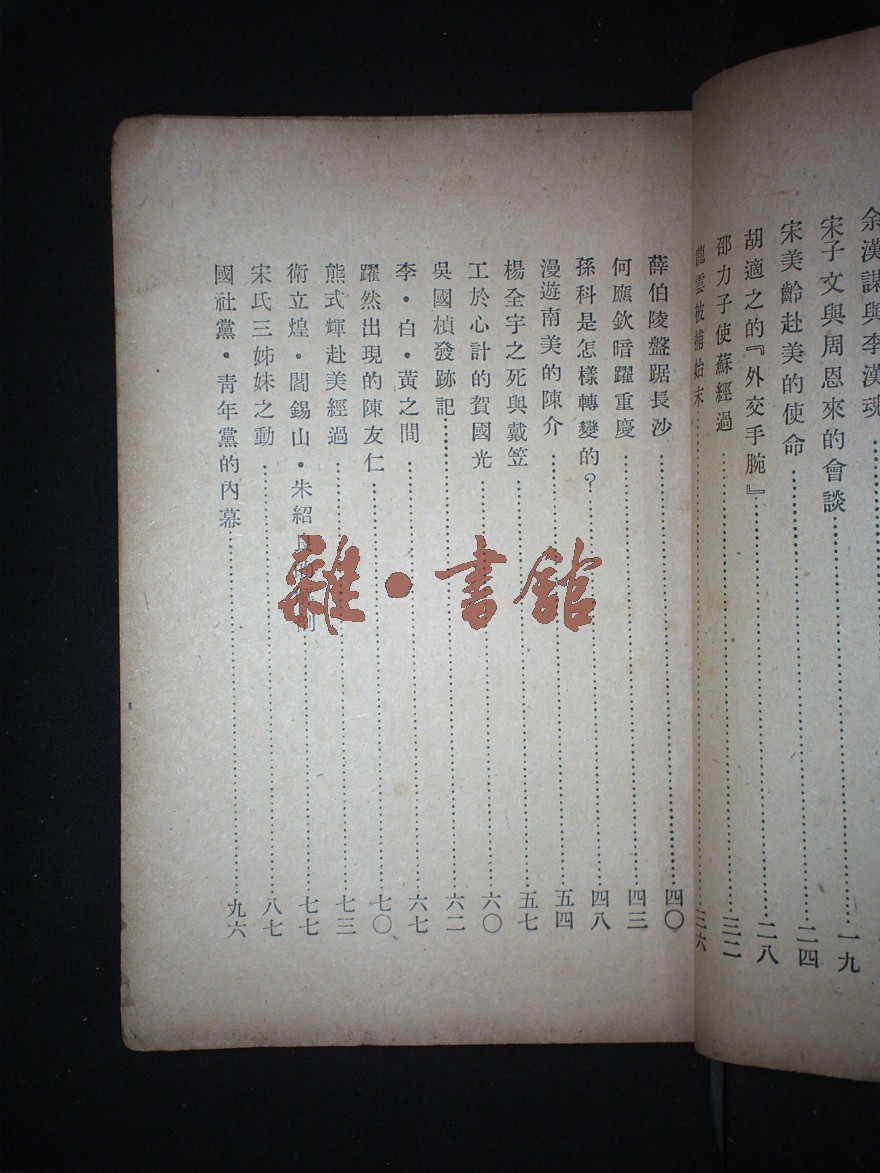 余漢謀與李漢魂
宋子文與周恩來的會談……一九
宋美齡赴美的使命……二四
胡適之的『外交手腕』……二八
邵力子使蘇經過……三二
龍雲被捕始末……三六
薛伯陵盤踞長沙……四〇
何應欽暗躍重慶……四三
孫科是怎樣轉變的？……四八
漫遊南美的陳介……五四
楊全宇之死與戴笠……五七
工於心計的賀國光……六〇
吳國楨發跡記……六二
李・白・黃之間……六七
躍然出現的陳友仁……七〇
熊式輝赴美經過……七三
衛立煌・閻錫山・朱紹良……七七
宋氏三姊妹之動……八七
國社黨・青年黨的內幕……九六
雜・書館